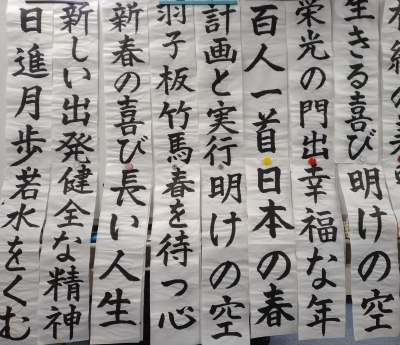 生きる喜び
明けの空
栄光の門出
幸福な年
百人一首
日本の春
計画と実行
明けの空
羽子板竹馬
春を待つ心
新春の喜び
長い人生
新しい出発
健全な精神
日進月歩
若水をくむ